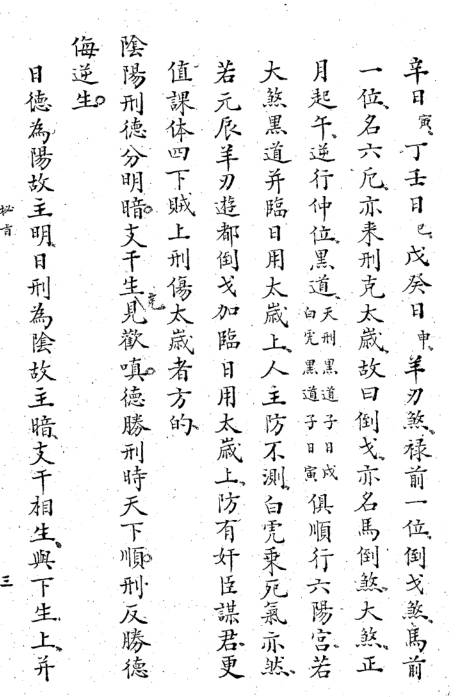 辛日寅丁壬日巳戊癸日申羊刃煞祿前一位倒戈煞馬前
一位名六厄亦来刑克太歲故曰倒戈亦名馬倒煞大煞正
月起午逆行仲位黑道天刑黑道子日戌白虎黑道子日寅俱順行六陽宮若
大煞黑道并臨日用太歲上人主防不測白虎乘死氣亦然
若元辰羊刃遊都倒戈加臨日用太歲上防有奸臣謀君更
值課体四下賊上刑傷太歲者方的
陰陽刑德分明暗支干生克見歡嗔德勝刑時天下順刑反勝德
侮逆生
日德為陽故主明日刑為陰故主暗支干相生與下生上并
秘言
三